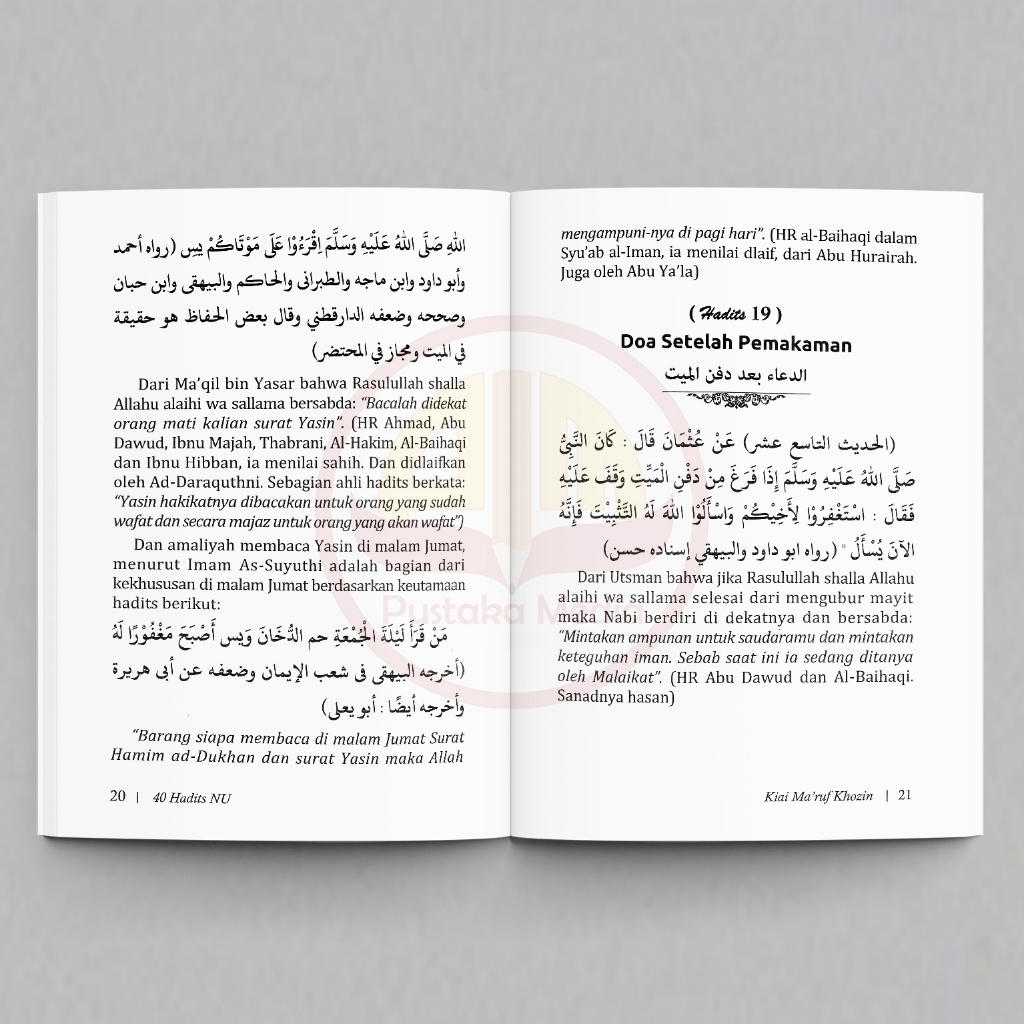 اللهِ صَلَّى اللهُ عَلَيْهِ وَسَلَّمَ اِقْرَءُوْا عَلَى مَوْتَاكُمْ يس (رواه أحمد
وأبو داود وابن ماجه والطبرانى والحاكم والبيهقى وابن حبان
وصححه وضعفه الدارقطني وقال بعض الحفاظ هو حقيقة
في الميت ومجاز في المحتضر)
Dari Ma’qil bin Yasar bahwa Rasulullah shalla
Allahu alaihi wa sallama bersabda: “Bacalah didekat
orang mati kalian surat Yasin”. (HR Ahmad, Abu
Dawud, Ibnu Majah, Thabrani, Al-Hakim, Al-Baihaqi
dan Ibnu Hibban, ia menilai sahih. Dan didlaifkan
oleh Ad-Daraquthni. Sebagian ahli hadits berkata:
“Yasin hakikatnya dibacakan untuk orang yang sudah
wafat dan secara majaz untuk orang yang akan wafat”)
Dan amaliyah membaca Yasin di malam Jumat,
menurut Imam As-Suyuthi adalah bagian dari
kekhususan di malam Jumat berdasarkan keutamaan
hadits berikut:
مَنْ قَرَأَ لَيْلَةَ الْجُمْعَةِ حم الدُّخَانَ وَيس أَصْبَحَ مَغْفُوْرًا لَهُ
(أخرجه البيهقى فى شعب الإيمان وضعفه عن أبى هريرة
وأخرجه أيضًا : أبو يعلى)
“Barang siapa membaca di malam Jumat Surat
Hamim ad-Dukhan dan surat Yasin maka Allah
20 | 40 Hadits NU
mengampuni-nya di pagi hari”. (HR al-Baihaqi dalam
Syu’ab al-Iman, ia menilai dlaif, dari Abu Hurairah.
Juga oleh Abu Ya’la)
( Hadits 19 )
Doa Setelah Pemakaman
الدعاء بعد دفن الميت
(الحديث التاسع عشر) عَنْ عُثْمَانَ قَالَ : كَانَ النَّبِيُّ
صَلَّى اللهُ عَلَيْهِ وَسَلَّمَ إِذَا فَرَغَ مِنْ دَفْنِ الْمَيِّتِ وَقَفَ عَلَيْهِ
فَقَالَ : اسْتَغْفِرُوْا لِأَخِيْكُمْ وَاسْأَلُوْا اللهَ لَهُ التَّثْبِيْتَ فَإِنَّهُ
الآنَ يُسْأَلُ " (رواه ابو داود والبيهقي إسناده حسن)
Dari Utsman bahwa jika Rasulullah shalla Allahu
alaihi wa sallama selesai dari mengubur mayit
maka Nabi berdiri di dekatnya dan bersabda:
“Mintakan ampunan untuk saudaramu dan mintakan
keteguhan iman. Sebab saat ini ia sedang ditanya
oleh Malaikat”. (HR Abu Dawud dan Al-Baihaqi.
Sanadnya hasan)
Kiai Ma’ruf Khozin | 21
Pustaka Media